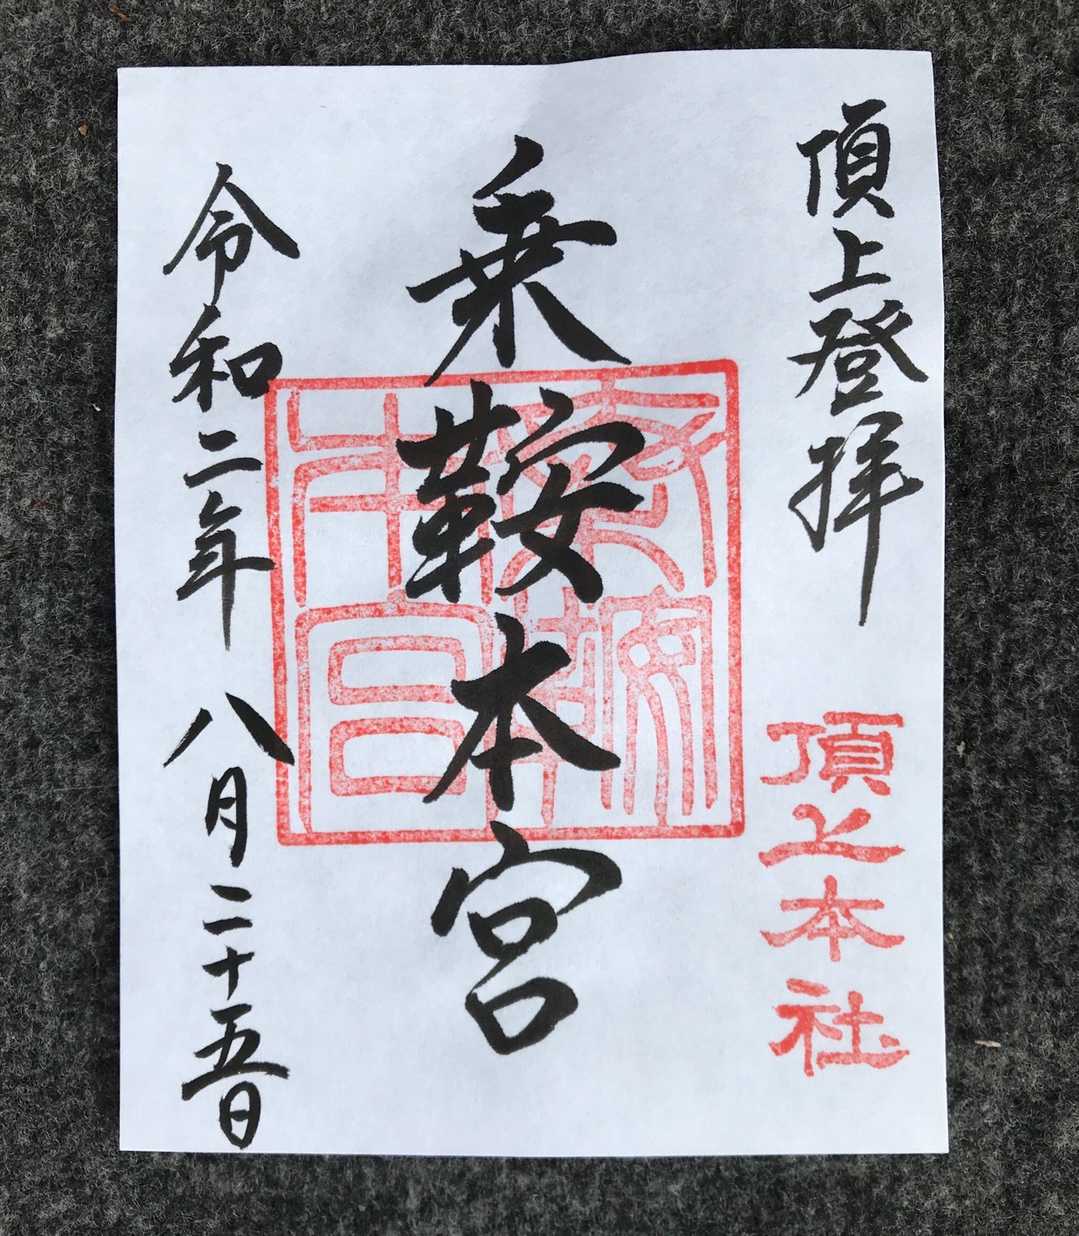 頂上登拝
頂上本社
乗鞍本宮
乗鞍本宮
令和二年 八月二十五日